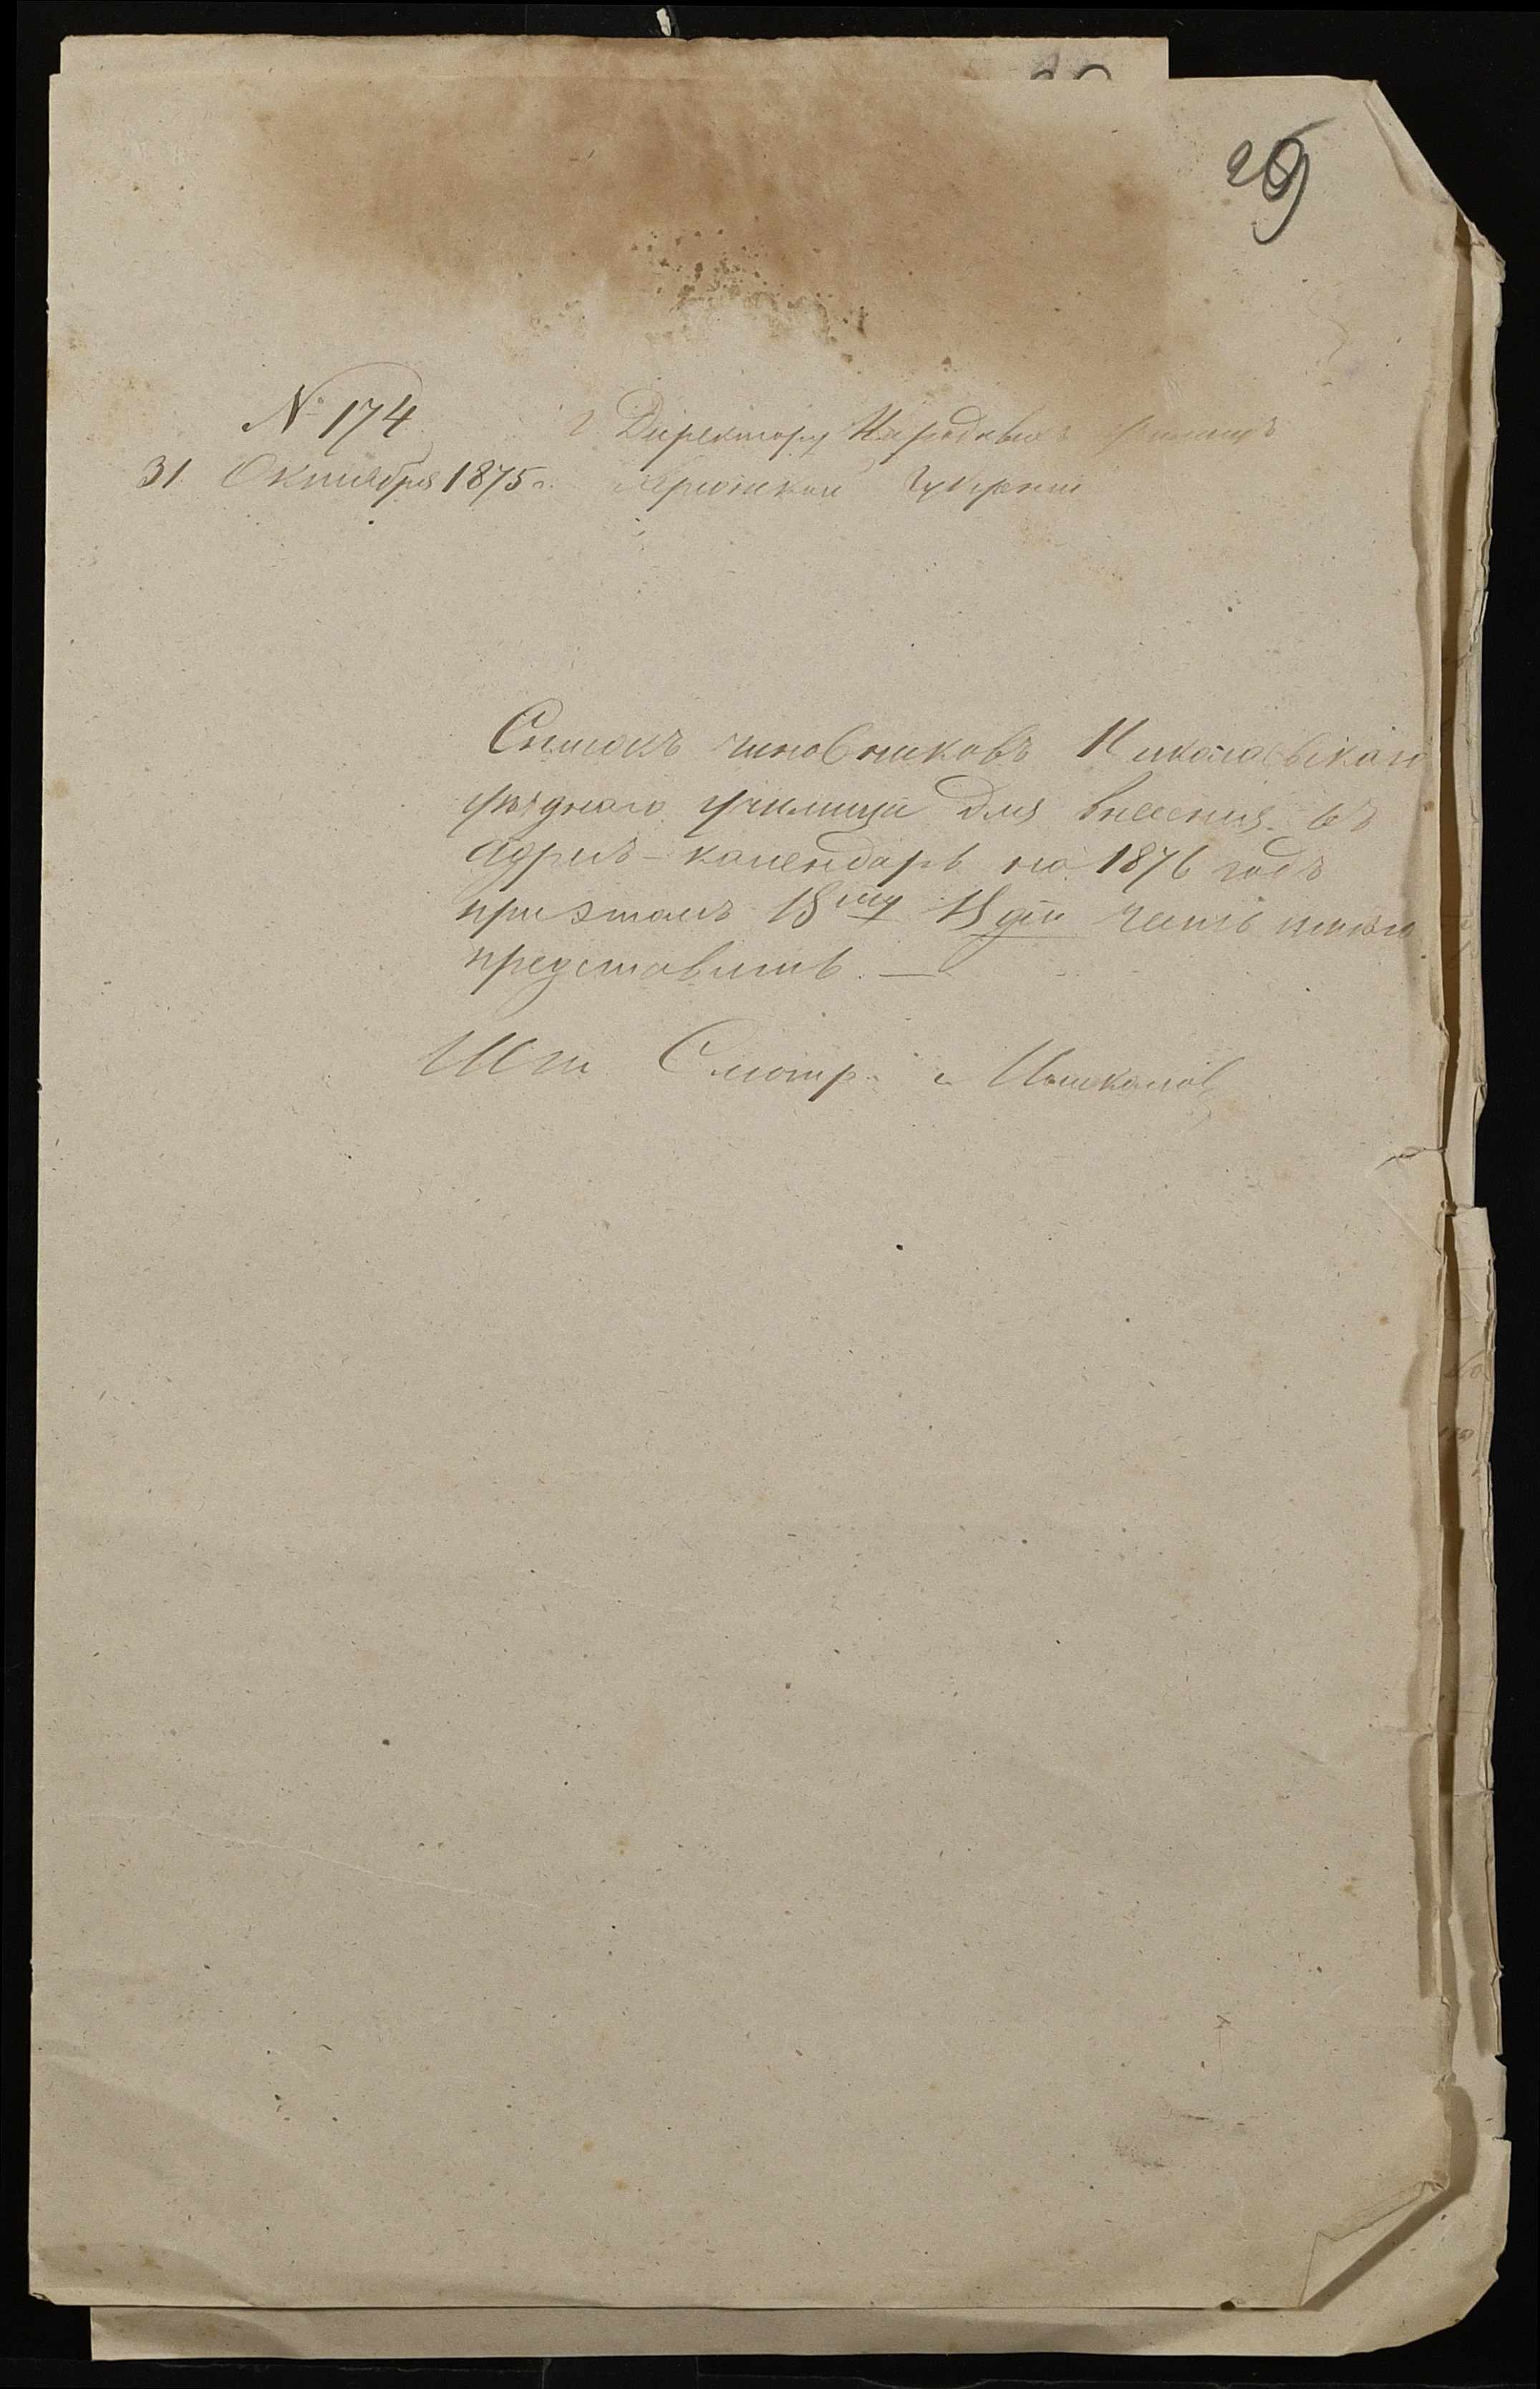 29
№ 174
31 Октября 1875 г.
г. Директору Народныхъ Училищъ
Херсонской Губернии
Списокъ чиновниковъ Николаевскаго
уѣзднаго училища для внесения въ
Адресъ-календарь на 1876 годъ
при этомъ честь имѣю
представить. —
Шт. Смотр.